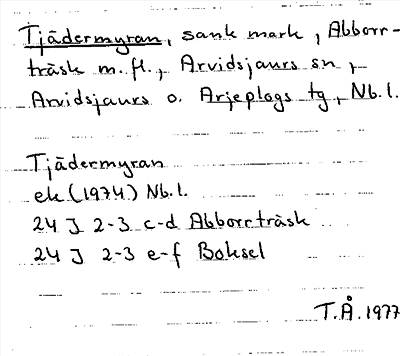 Tjädermyran, sank mark, Abborr-
träsk m.fl., Arvidsjaurs sn,
Arvidsjaurs o. Arjeplogs tg, Nb.l.
Tjädermyran
ek (1974) Nb.l.
24 J 2-3 c-d Abborrträsk
24 J 2-3 e-f Boksel
T.Å. 1977